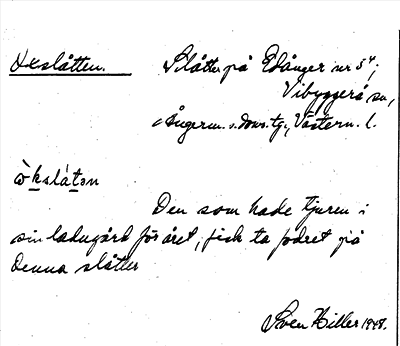 Oxslåtten. Slåtter på Edånger nr 5⁴;
Vibyggerå sn,
Ångerm. s. doms.tg., Västern. l.
ò̀kslát​ən
Den som hade tjuren i
sin ladugård för året, fick ta fodret på
denna slåtter
Sven Hiller 1948.